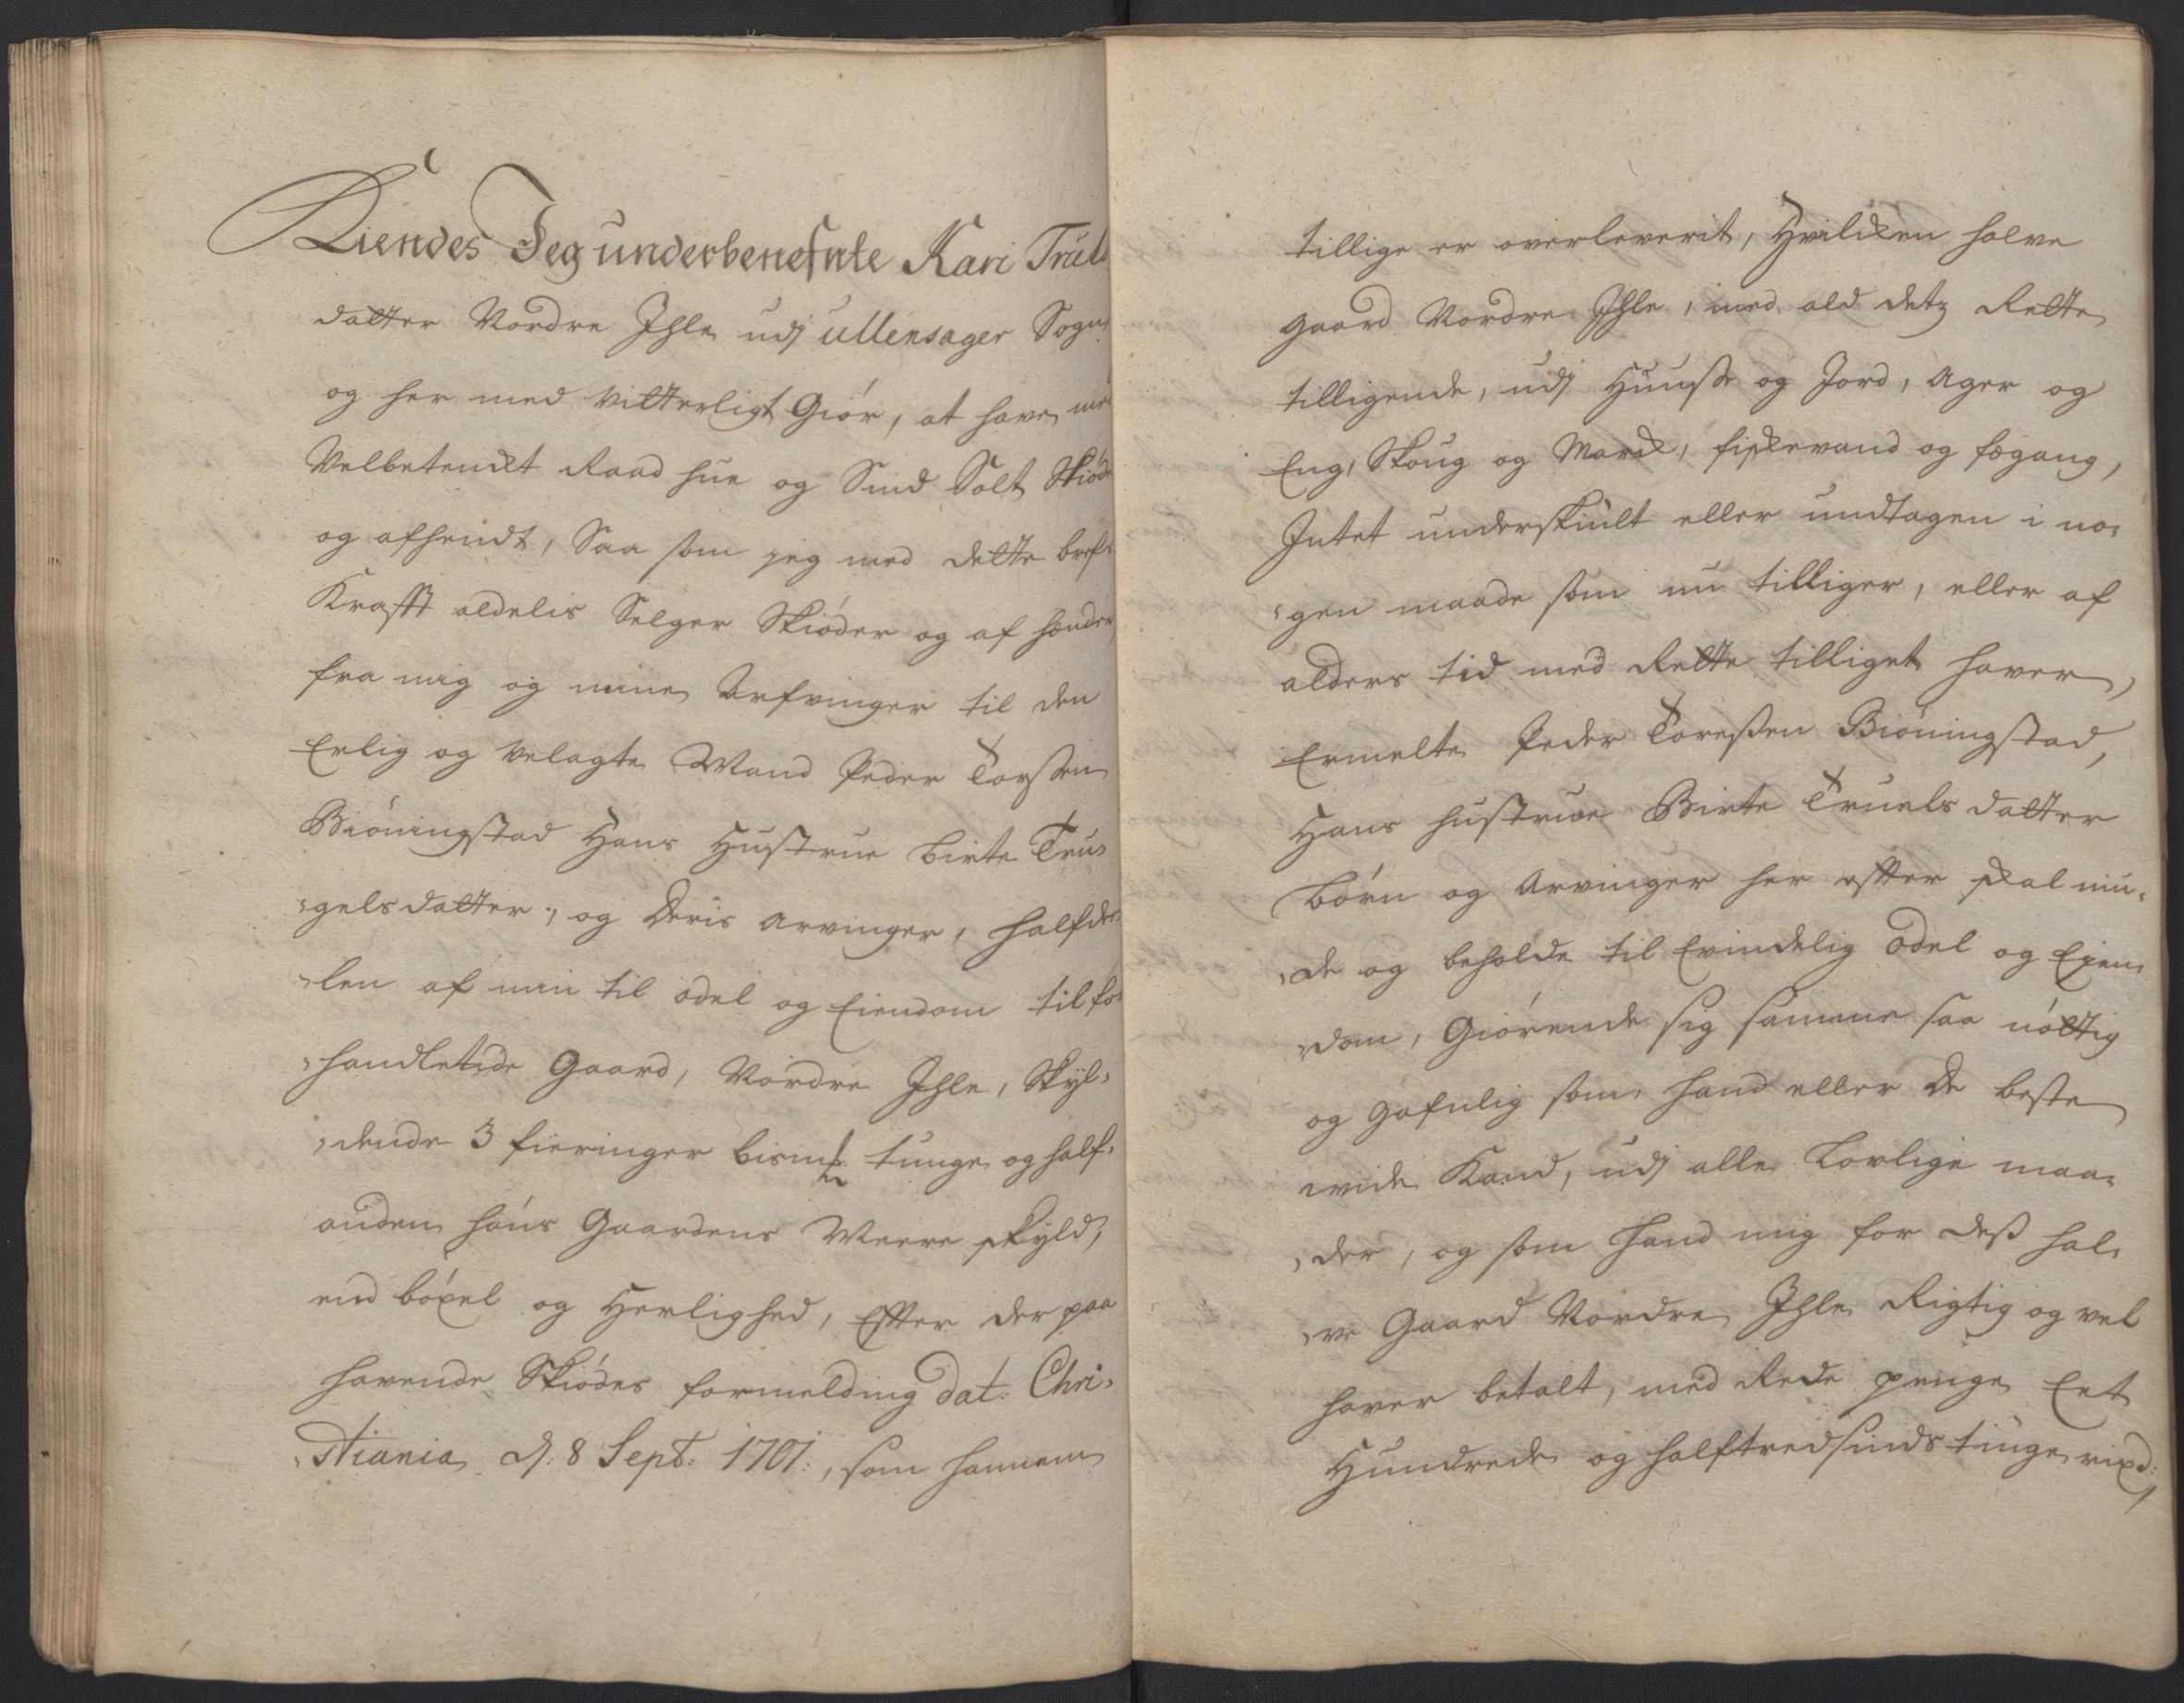 Kiendes Jeg underbenefnte Kari Truls
datter Nordre Ihle udj ullensager Sogn
og her med Vitterligt Giör, at have med
Velbetenckt Raad hue og Sind Solt Skiödt
og afhendt, Saa som jeg med dette brefs
Krafft aldelis Selger Skiöder og af hender
fra mig og mine Arfvinger til den
Erlig og Velagte Mand Peder Torßen
Biöningstad Hans Hustrue Birte Tru-
-gelsdatter, og Deris Arvinger, Halfde-
-len af min til odel og Eiendom tilfor-
-handlede Gaard, Nordre Ihle, Skyl-
-dende 3 fieringer bism: tunge og half-
anden höns Gaardens Meere skyld,
med böxel og Herlighed, Effter der paa
havende Skiödes formelding dat: Chri-
-stiania d: 8 Sept: 1701:, som hannem
tillige er overleverit, Hvilcken halve
gaard Nordre Ihle, med ald detz Rette
tilligende, udj Huuse og Jord, Ager og
Eng, Skoug og Marck, fiskevand og fægang,
Intet underskiult eller undtagen i no-
-gen maade som nu tilliger, eller af
alders tid med Rette tilliget haver,
Ermelte Peder Toreßen Biöningstad,
Hans hustrue Birte Truels datter
Börn og Arvinger her effter skal niu-
-de og beholde til Evindelig odel og Eyen-
-dom, Giörende sig samme saa nöttig
og gafnlig som hand eller de beste
vide Kand, udj alle Lovlige maa-
-der, og som hand mig for deß hal-
-ve Gaard Nordre Ihle Rigtig og vel
haver betalt, med Rede penge Eet
Hundrede og halftredsindstiuge rixd:,